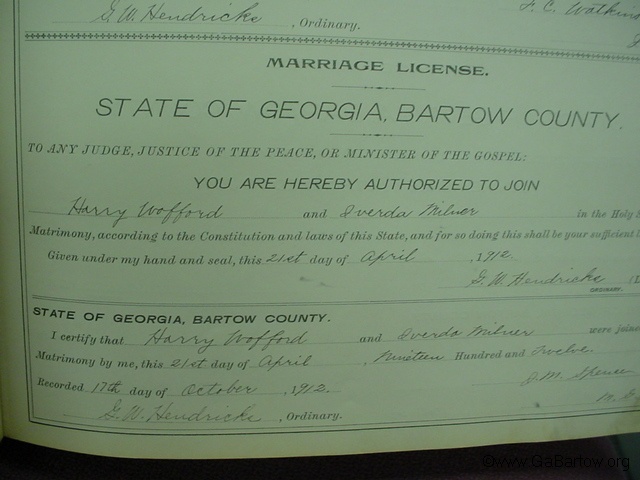 G. W. Hendricks, Ordinary.
F. C. Watkins
MARRIAGE LICENSE.
STATE OF GEORGIA, BARTOW COUNTY.
TO ANY JUDGE, JUSTICE OF THE PEACE, OR MINISTER OF THE GOSPEL:
YOU ARE HEREBY AUTHORIZED TO JOIN
Harry Wofford and Overda Milner in the Holy
Matrimony, according to the Constitution and laws of this State, and for so doing this shall be your sufficient
Given under my hand and seal, this 21st day of April, 1912
G. W. Hendricks
ORDINARY.
STATE OF GEORGIA, BARTOW COUNTY.
I certify that Harry Wofford and Overda Milner were joined
Matrimony by me, this 21st day of April, Nineteen Hundred and Twelve.
J. M. Spencer
Recorded 17th day of October, 1912.
M. G.
G. W. Hendricks, Ordinary.
©www.GaBartow.org